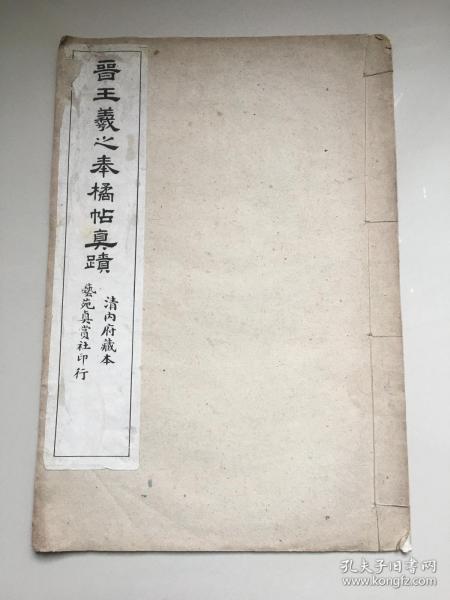 晋王羲之奉橘帖真蹟
清内府藏本
藝苑真賞社印行
孔夫子旧书网
www.kongfz.com